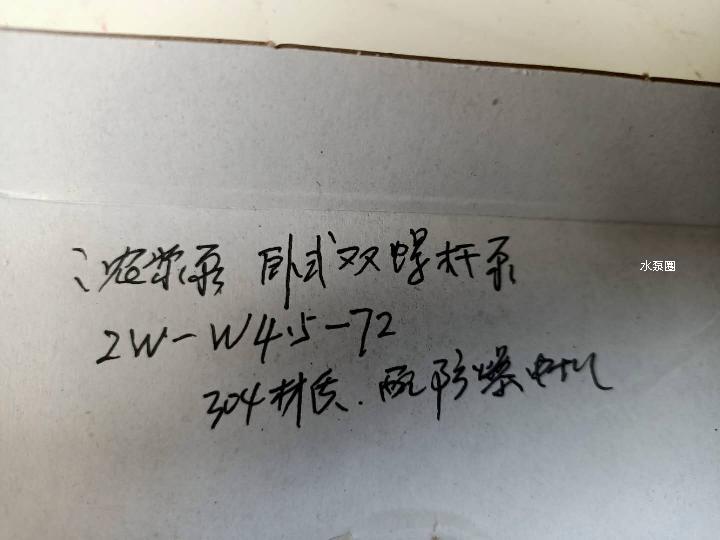 浓浆泵 卧式双螺杆泵
2W-W4.5-72
304材质.配防爆电机
水泵圈